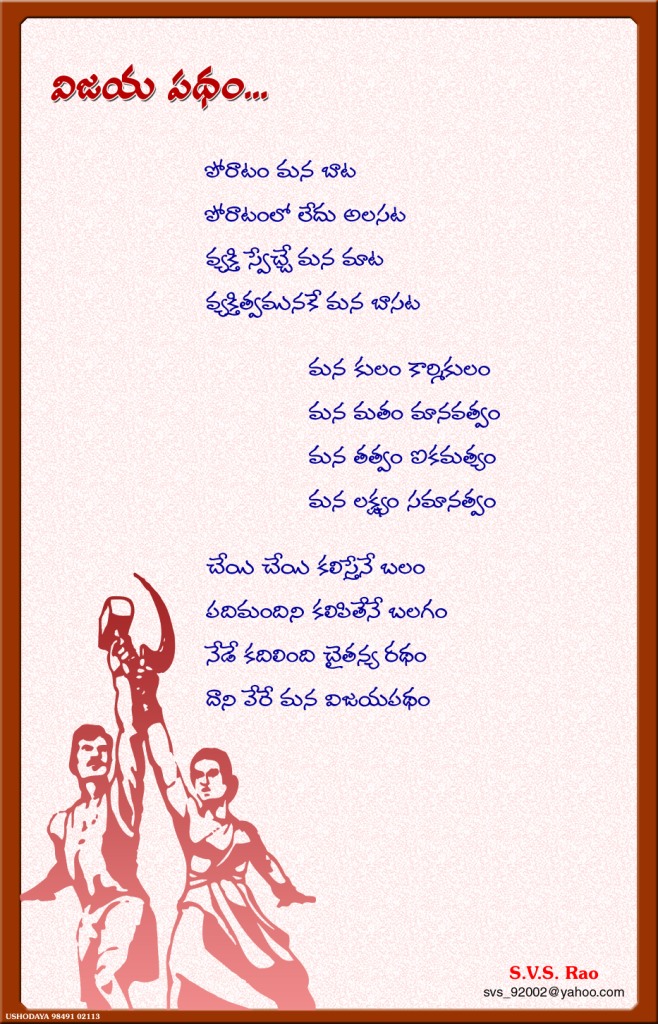 విజయ పథం...
పోరాటం మన బాట
పోరాటంలో లేదు అలసట
వ్యక్తి స్వేచ్ఛే మన మాట
వ్యక్తిత్వమునకే మన బాసట
మన కులం కార్మికులం
మన మతం మానవత్వం
మన తత్వం ఐకమత్యం
మన లక్ష్యం సమానత్వం
చేయి చేయి కలిస్తేనే బలం
పదిమందిని కలిపితేనే బలగం
నేడే కదిలింది చైతన్య రథం
దాని పేరే మన విజయపథం
S.V.S. Rao
svs_92002@yahoo.com
USHODAYA 98491 02113